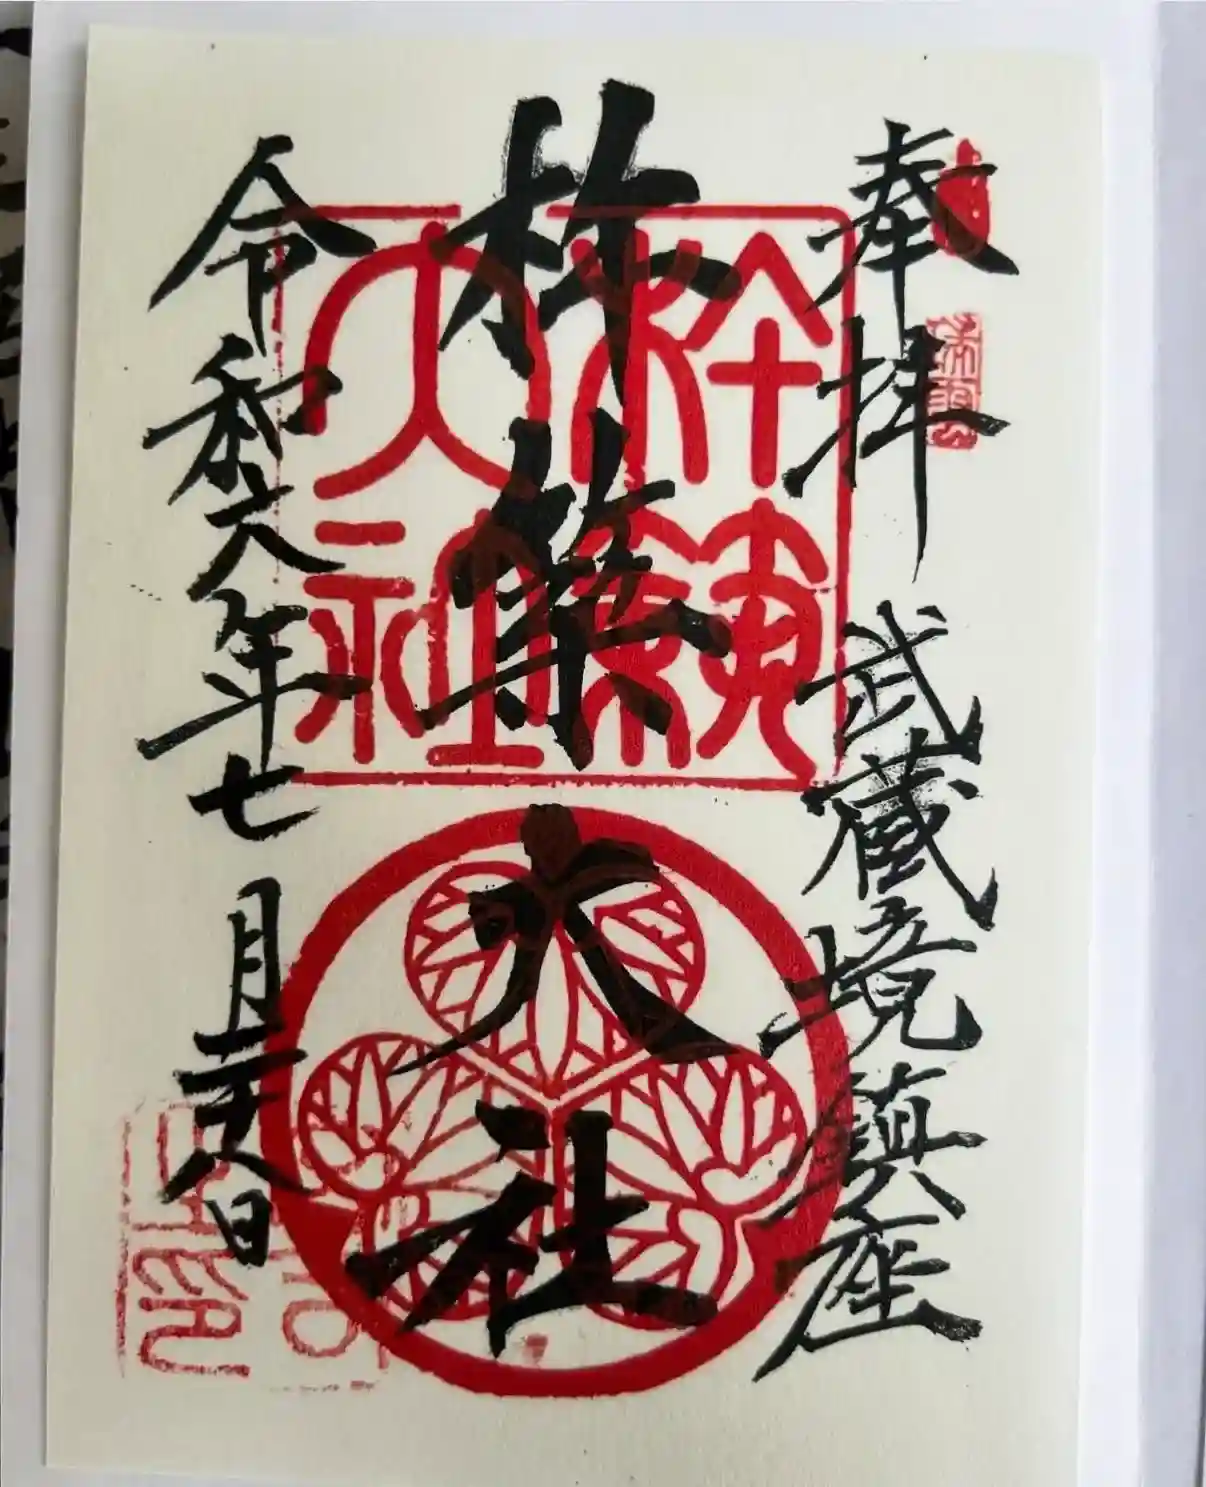 奉拝 武蔵境鎮座
杵築大社
杵築大社
令和六年七月二十八日